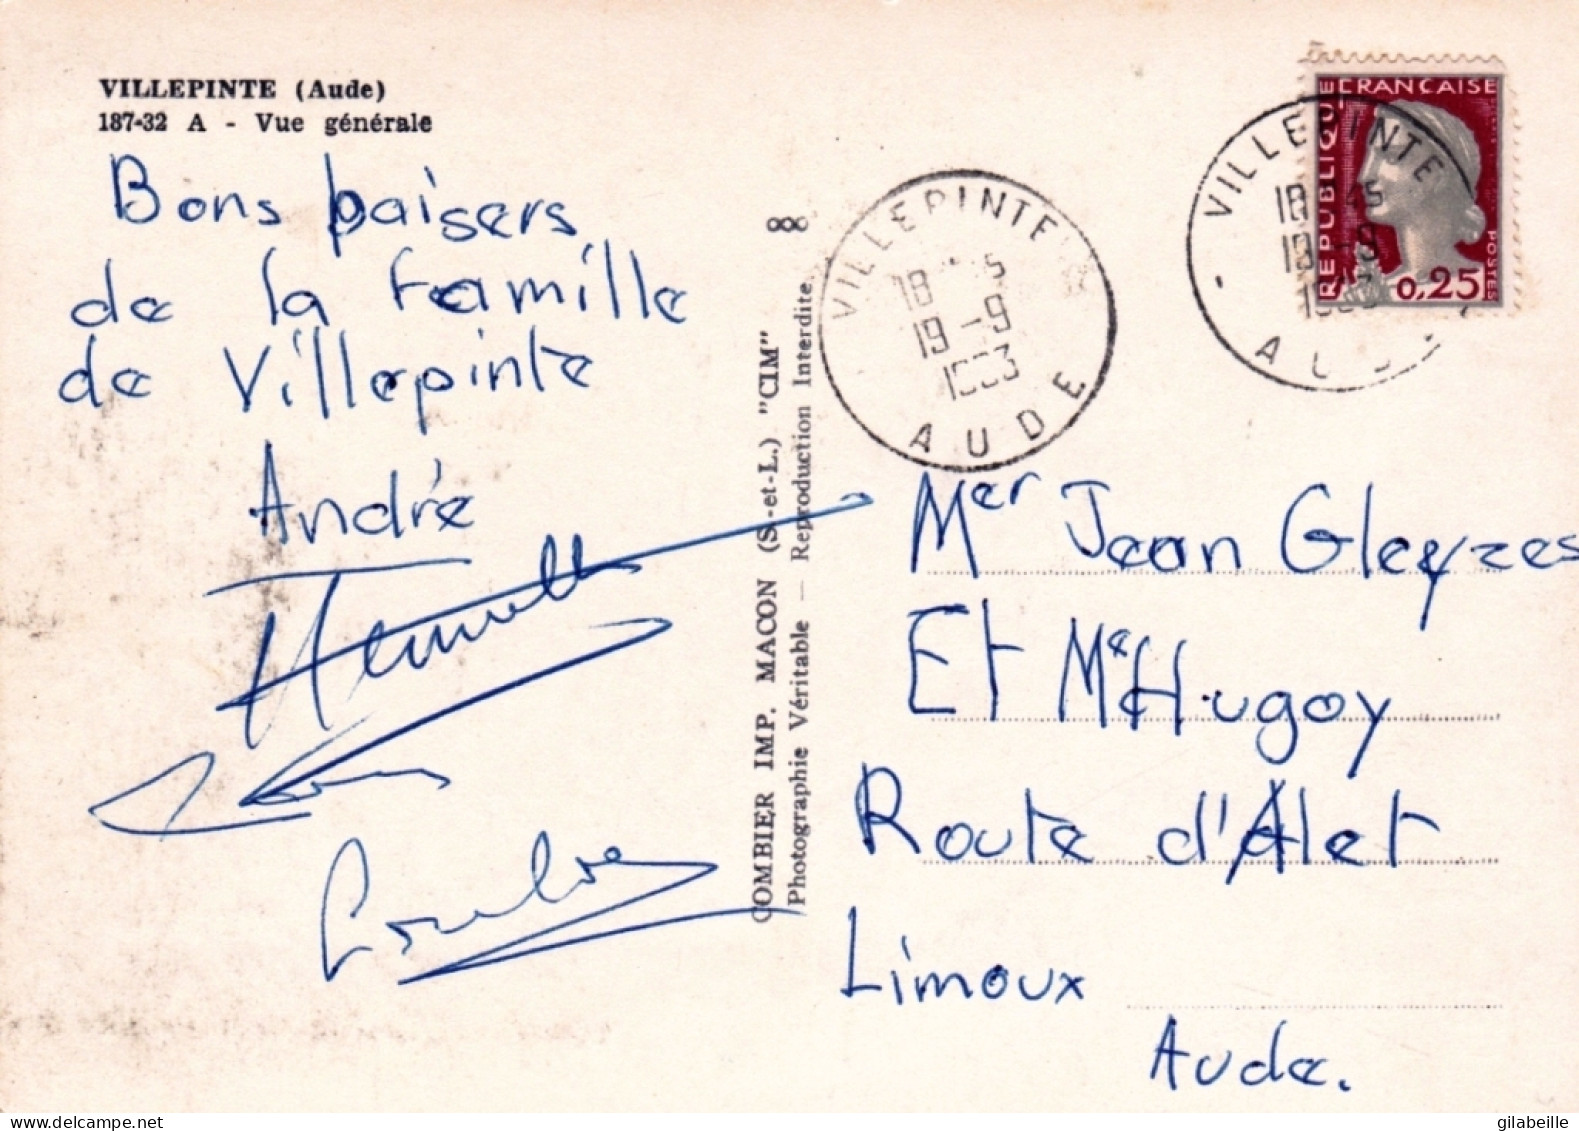 VILLEPINTE (Aude)
187-32 A - Vue générale
Bons baisers
de la famille
de Villepinte
André
COMBIER IMP. MACON (S.-et-L.) "CIM"
Photographie Véritable — Reproduction Interdite
VILLEPINTE
18
19 -9
AUDE
VILLEPINTE
18
-9
AUDE
REPUBLIQUE FRANÇAISE
POSTES
0,25
Mer Jean Gleyzes
Et Me Hugoy
Route d'Alet
Limoux
Aude.
gilabeille